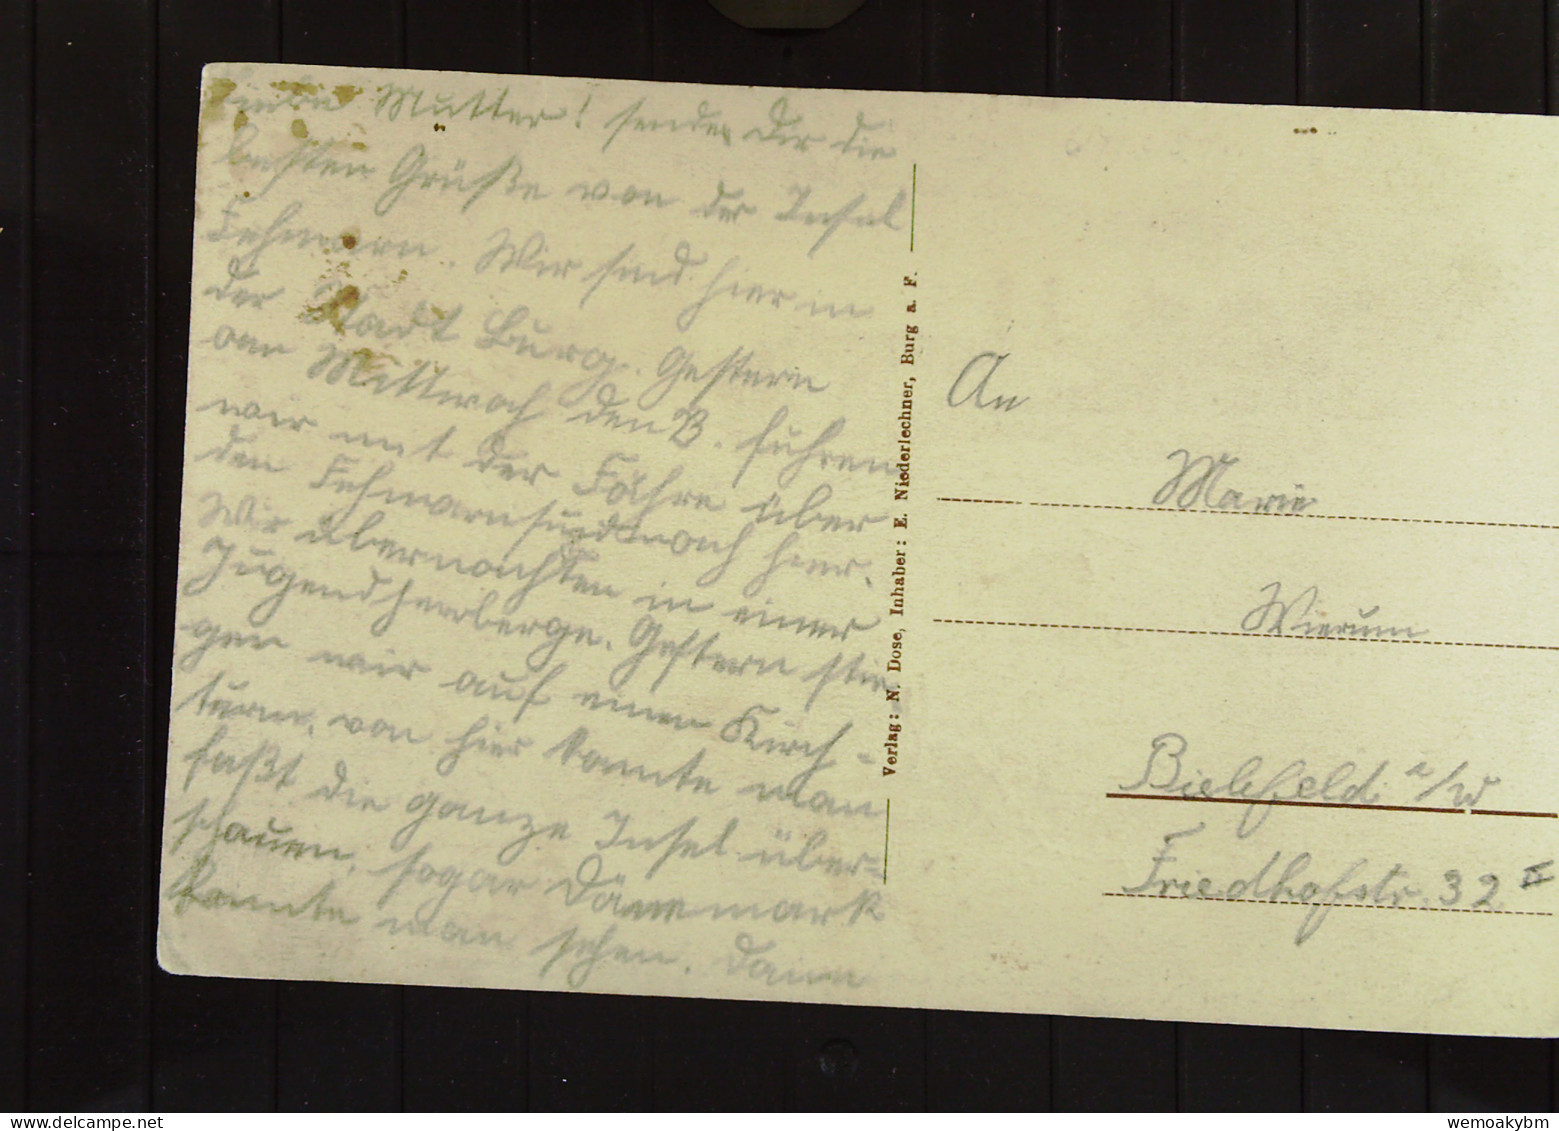 Liebe Mutter! sende Dir die
besten Grüße von der Insel
Fehmarn. Wir sind hier in
der Stadt Burg. Gestern
am Mittwoch den 8. fuhren
wir mit der Fähre über
den Fehmarnsund nach hier.
Wir übernachten in einer
Jugendherberge. Gestern stie
gen wir auf einen Kirch-
turm, von hier konnte man
faßt die ganze Insel über-
schauen, sogar Dänemark
konnte man sehen. Dann
Verlag: N. Dose, Inhaber: E. Niederlechner, Burg a. F.
An
Marie
Wierum
Bielefeld i/W
Friedhofstr. 32 II
wemoakybm
www.delcampe.net